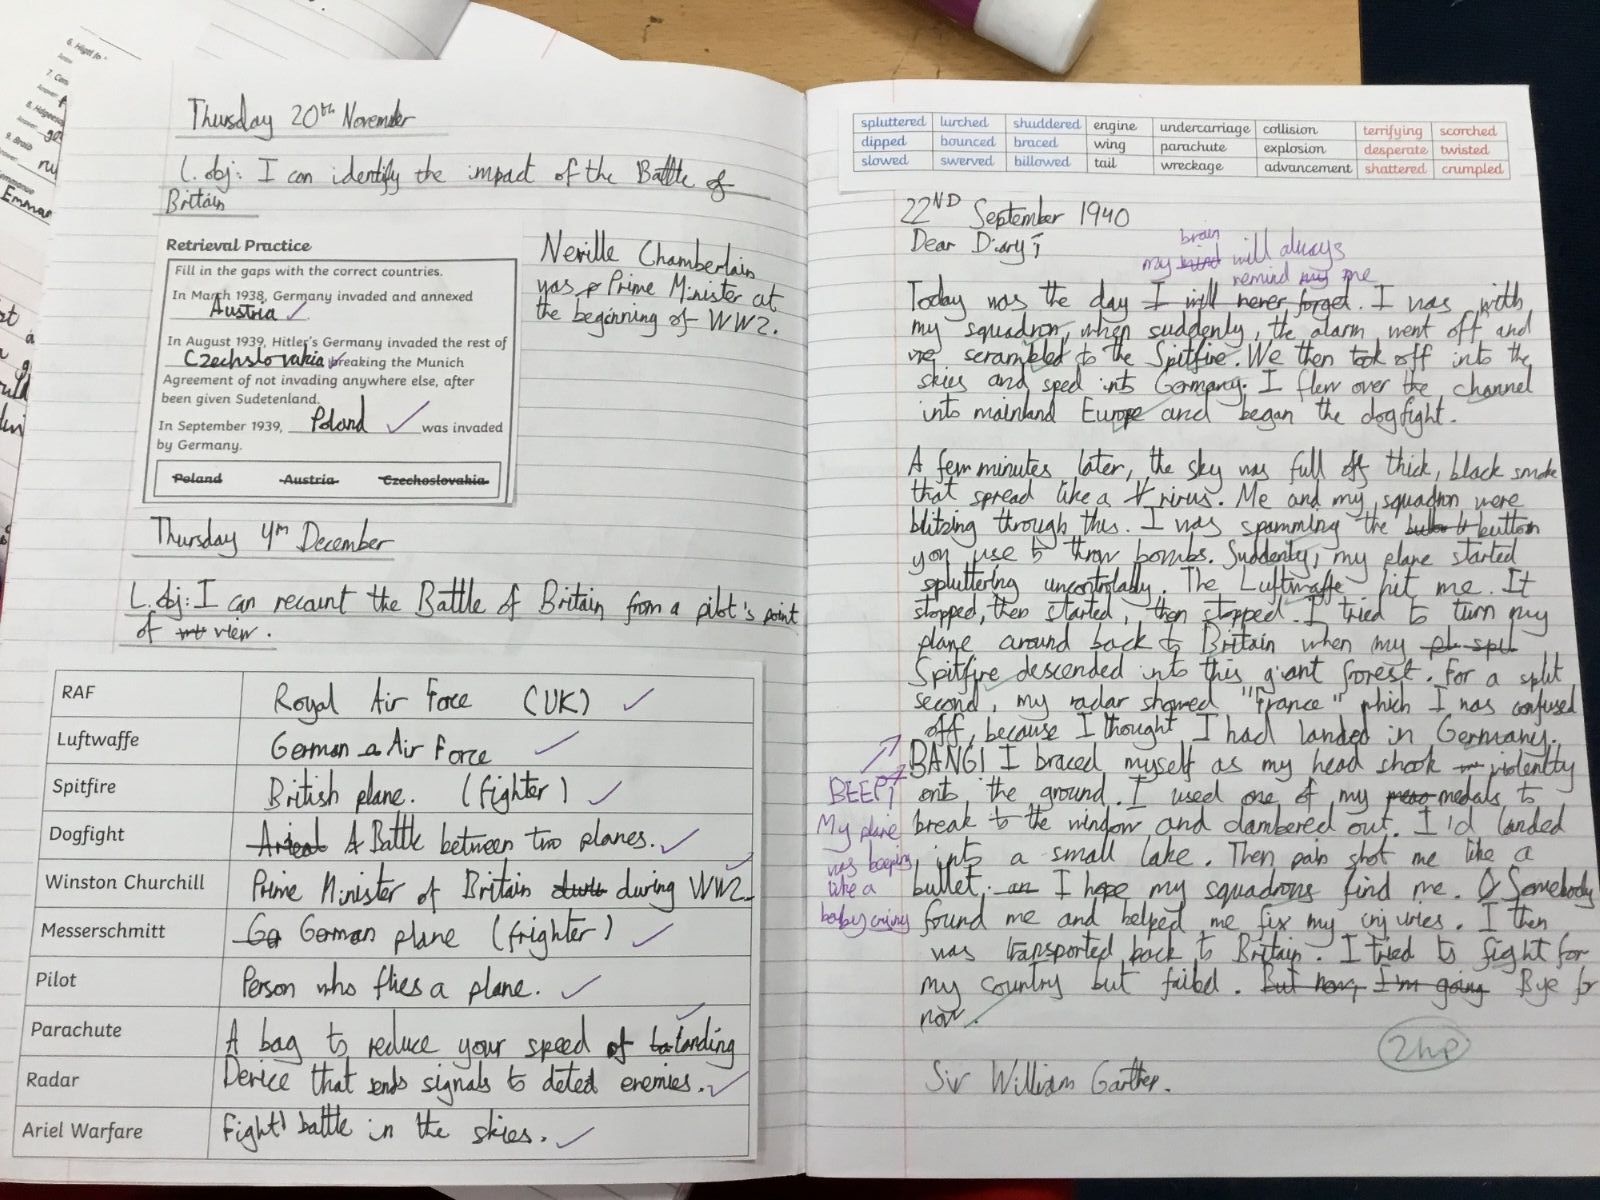 Thursday 20th November
L.obj: I can identify the impact of the Battle of
Britain
Retrieval Practice
Fill in the gaps with the correct countries.
In March 1938, Germany invaded and annexed
Austria ✓.
In August 1939, Hitler's Germany invaded the rest of
Czechslovakia breaking the Munich
Agreement of not invading anywhere else, after
been given Sudetenland.
In September 1939, Poland ✓ was invaded
by Germany.
Poland Austria Czechoslovakia
Neville Chamberlain
was Prime Minister at
the beginning of WW2.
Thursday 4th December
L.obj: I can recount the Battle of Britain from a pilot's point
of view.
RAF Royal Air Force (UK) ✓
Luftwaffe German Air Force ✓
Spitfire British plane. (fighter) ✓
Dogfight A Battle between two planes. ✓
Winston Churchill Prime Minister of Britain during WW2. ✓
Messerschmitt German plane (frighter) ✓
Pilot Person who flies a plane. ✓
Parachute A bag to reduce your speed of landing ✓
Radar Device that sends signals to deted enemies. ✓
Ariel Warfare Fight/battle in the skies. ✓
spluttered lurched shuddered engine undercarriage collision terrifying scorched
dipped bounced braced wing parachute explosion desperate twisted
slowed swerved billowed tail wreckage advancement shattered crumpled
22ND September 1940
Dear Diary,
brain
my mind will always
remind my me
Today was the day I will never forget. I was with
my squadron, when suddenly, the alarm went off and
we scrambled to the Spitfire. We then took off into the
skies and sped into Germany. I flew over the channel
into mainland Europe and began the dogfight.
A few minutes later, the sky was full off thick, black smoke
that spread like a virus. Me and my squadron were
blitzing through this. I was spamming the button
you use to throw bombs. Suddenly, my plane started
spluttering uncontrolably. The Luftwaffe hit me. It
stopped, then started, then stopped. I tried to turn my
plane around back to Britain when my
Spitfire descended into this giant forest. For a split
second, my radar showed "France" which I was confused
off, because I thought I had landed in Germany.
BANG! I braced myself as my head shook violentty
onto the ground. I used one of my medals to
break to the window and clambered out. I'd landed
into a small lake. Then pain shot me like a
bullet. I hope my squadrons find me. Somebody
found me and helped me fix my injuries. I then
was transported back to Britain. I tried to fight for
my country but failed. But now, I'm going Bye for
now.
BEEP!
My plane
was beeping
like a
baby crying
2hp
Sir William Garther.